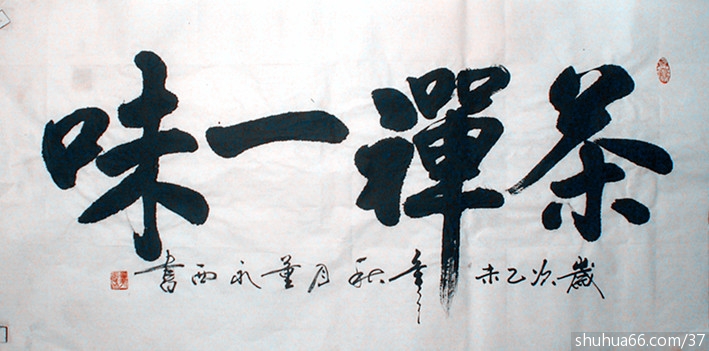 茶禪一味
歲次乙未年秋月董永西書
shuhua66.com/37